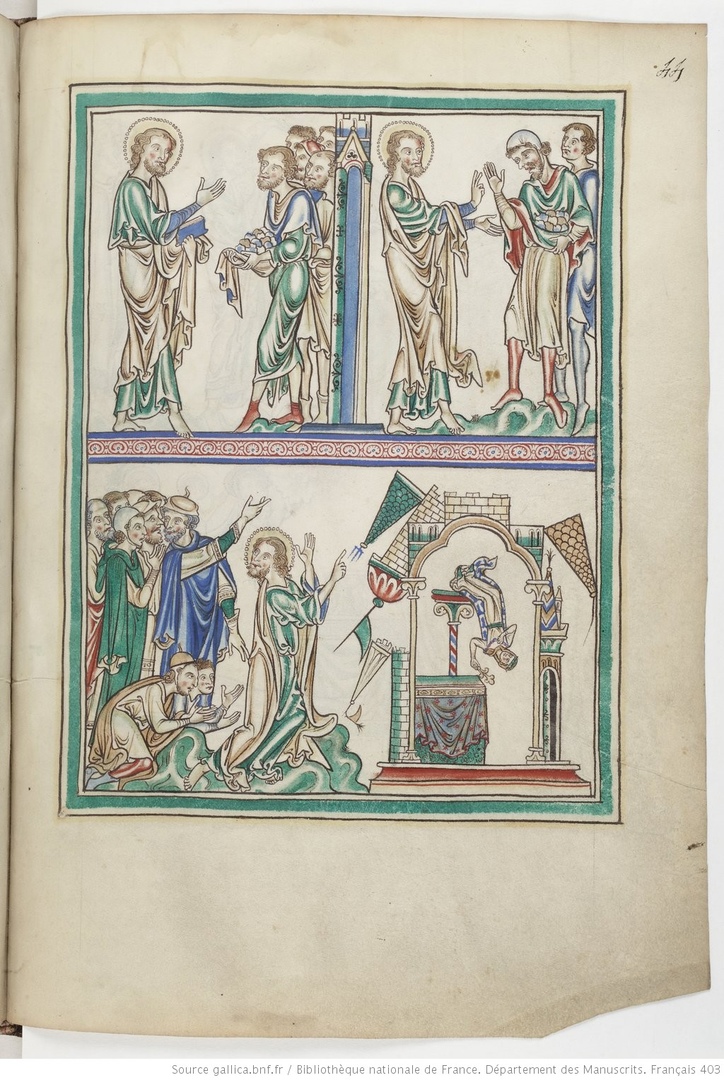 44
Source gallica.bnf.fr / Bibliothèque nationale de France. Département des Manuscrits. Français 403